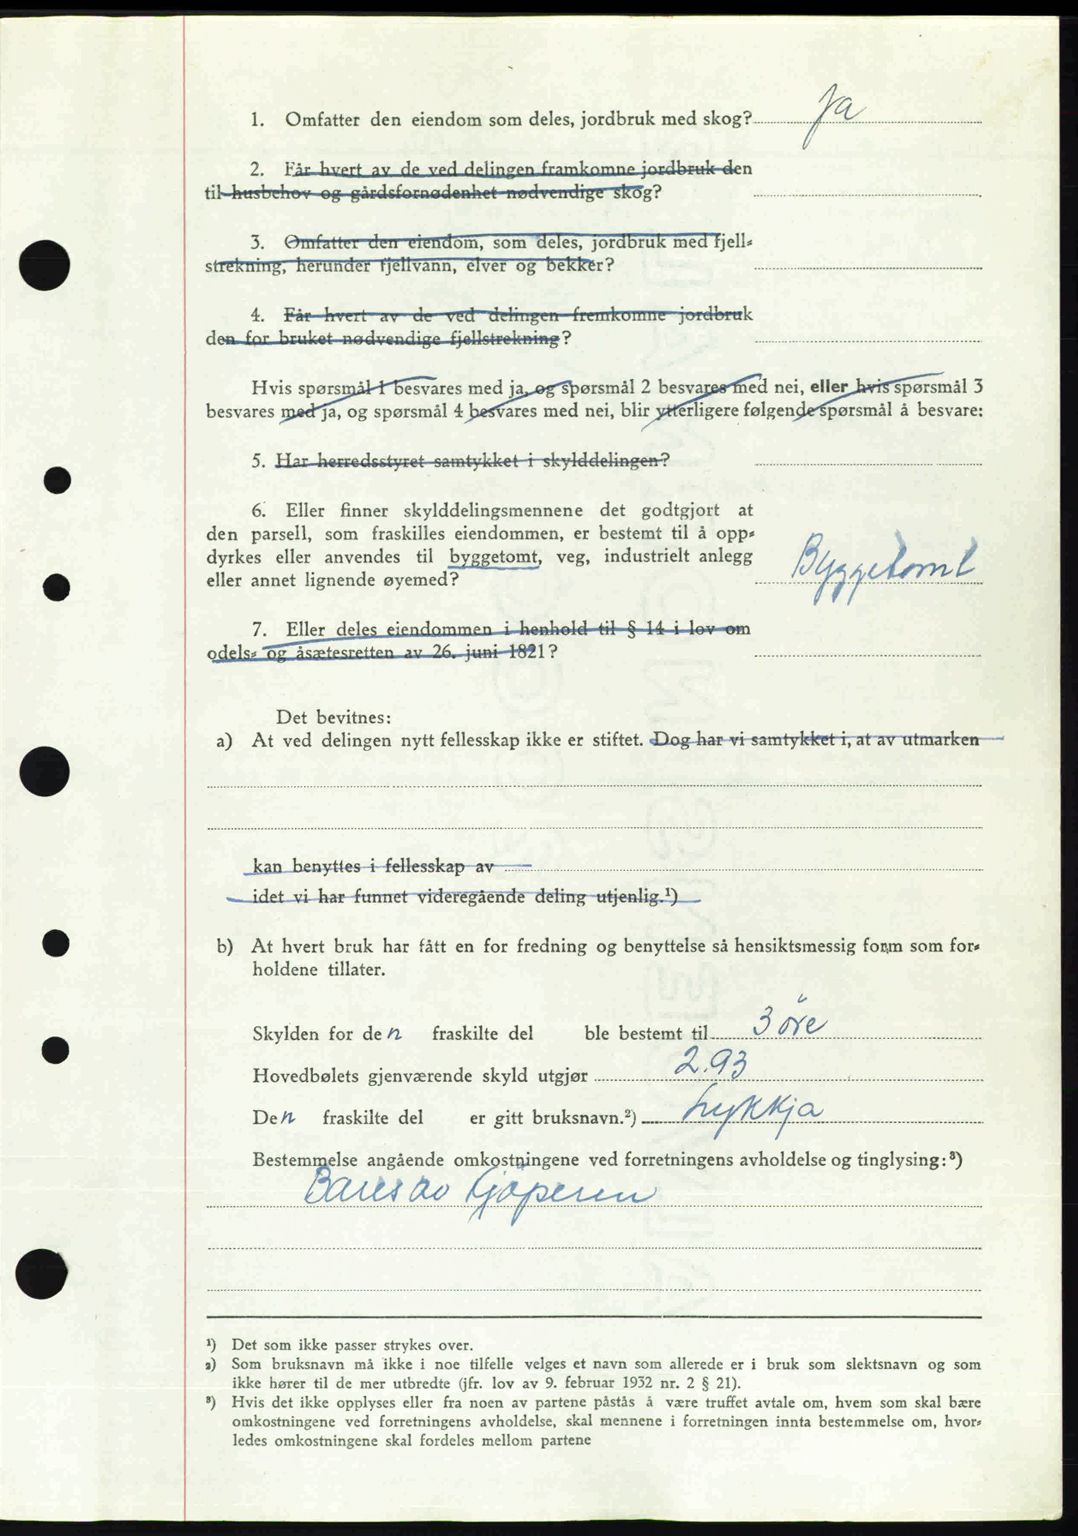 1. Omfatter den eiendom som deles, jordbruk med skog? Ja
2. Får hvert av de ved delingen framkomne jordbruk den
til husbehov og gårdsfornødenhet nødvendige skog?
3. Omfatter den eiendom, som deles, jordbruk med fjell-
strekning, herunder fjellvann, elver og bekker?
4. Får hvert av de ved delingen fremkomne jordbruk
den for bruket nødvendige fjellstrekning?
Hvis spørsmål 1 besvares med ja, og spørsmål 2 besvares med nei, eller hvis spørsmål 3
besvares med ja, og spørsmål 4 besvares med nei, blir ytterligere følgende spørsmål å besvare:
5. Har herredsstyret samtykket i skylddelingen?
6. Eller finner skylddelingsmennene det godtgjort at
den parsell, som fraskilles eiendommen, er bestemt til å opp-
dyrkes eller anvendes til byggetomt, veg, industrielt anlegg
eller annet lignende øyemed? Byggetomt
7. Eller deles eiendommen i henhold til § 14 i lov om
odels- og åsætesretten av 26. juni 1821?
Det bevitnes:
a) At ved delingen nytt fellesskap ikke er stiftet. Dog har vi samtykket i, at av utmarken
kan benyttes i fellesskap av
idet vi har funnet videregående deling utjenlig.¹)
b) At hvert bruk har fått en for fredning og benyttelse så hensiktsmessig form som for-
holdene tillater.
Skylden for den fraskilte del ble bestemt til 3 øre
Hovedbølets gjenværende skyld utgjør 2.93
Den fraskilte del er gitt bruksnavn.²) Lykkja
Bestemmelse angående omkostningene ved forretningens avholdelse og tinglysing:³)
Bæres av Kjöperen
¹) Det som ikke passer strykes over.
²) Som bruksnavn må ikke i noe tilfelle velges et navn som allerede er i bruk som slektsnavn og som
ikke hører til de mer utbredte (jfr. lov av 9. februar 1932 nr. 2 § 21).
³) Hvis det ikke opplyses eller fra noen av partene påstås å være truffet avtale om, hvem som skal bære
omkostningene ved forretningens avholdelse, skal mennene i forretningen innta bestemmelse om, hvor-
ledes omkostningene skal fordeles mellom partene